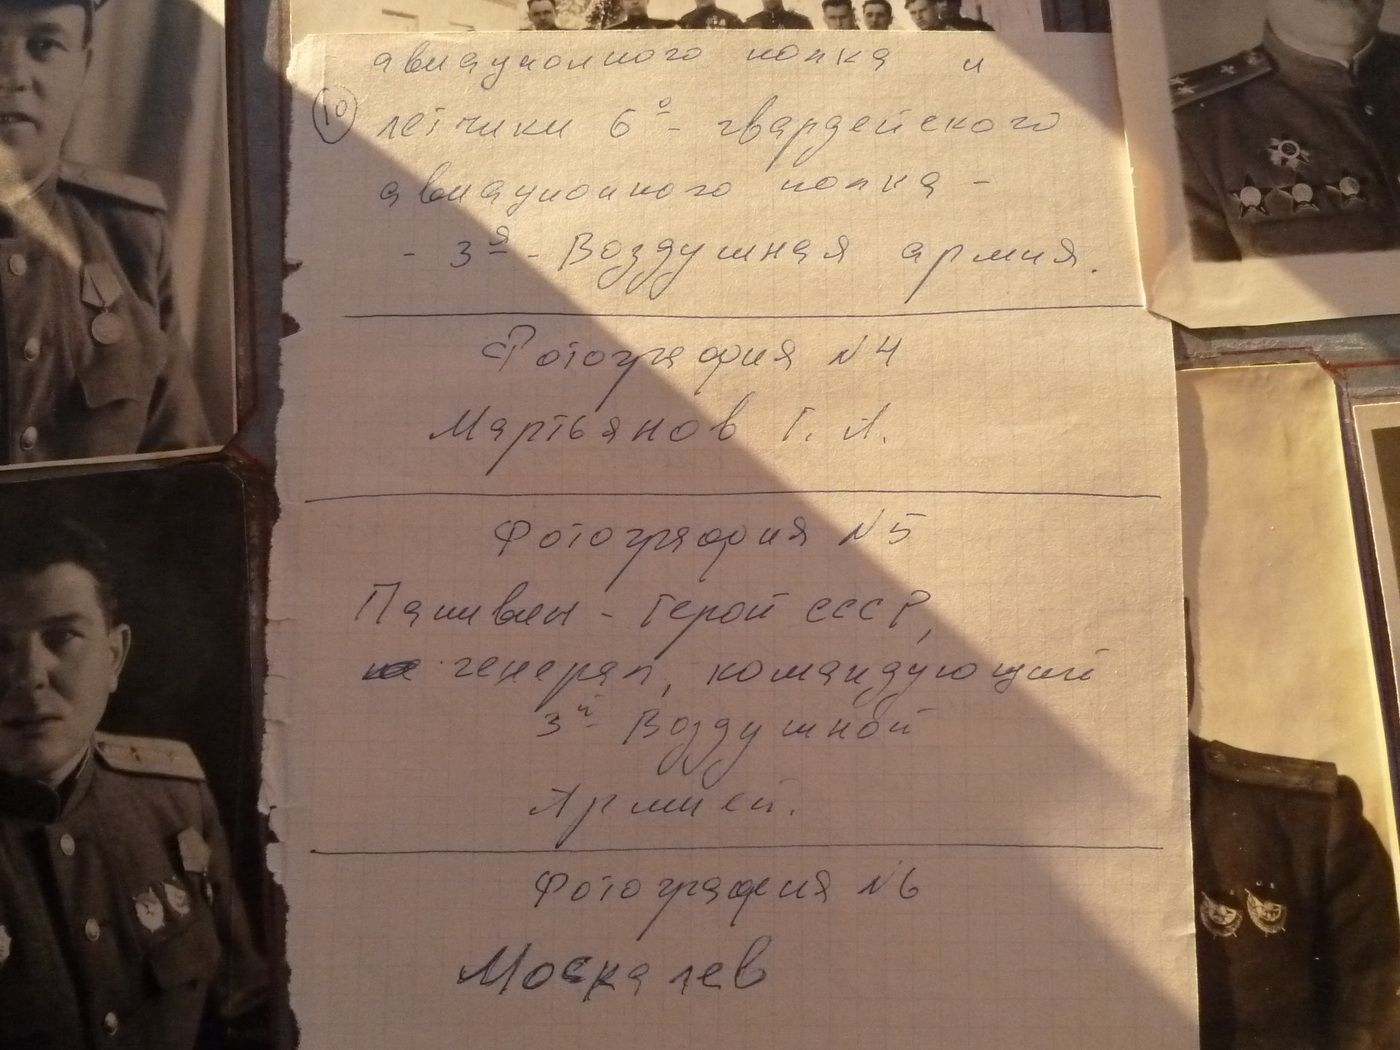 авиационного полка и
10 лётчики 6о- гвардейского
авиационного полка -
- 3я - Воздушная армия.
Фотография N4
Мартьянов Г. А.
Фотография N5
Папивин - Герой СССР,
генерал, командующий
3й- Воздушной
Армией.
Фотография N6
Москалев